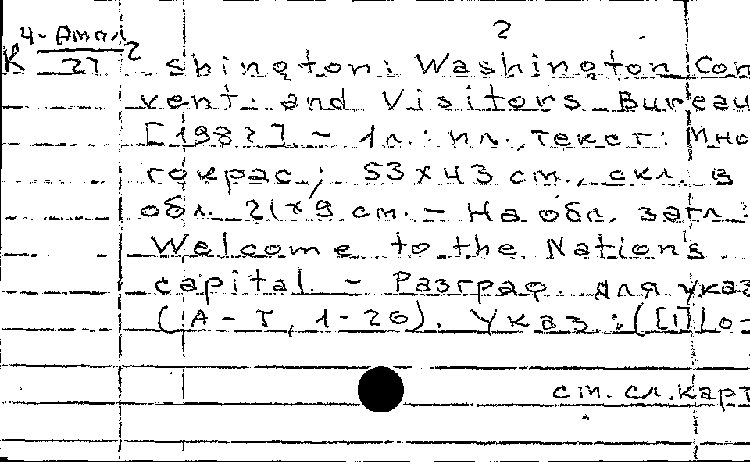 2
К 4-Ампл/27 2
shington: Washington Con
vent. and Visitors Bureau
[198?] - 1 л.: ил., текст: Мно
гокрас; 53x43 см., скл. в
обл. 21x9 см. - На обл. загл.:
Welcome to the Nation's
capital - Разграф. для указ
(A-T, 1-20). Указ.: ([1]
см. сл. карт